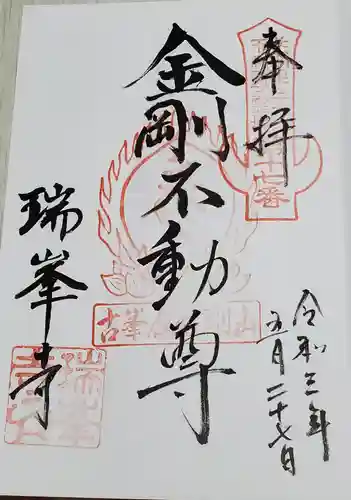 奉拝
金剛不動尊
瑞峯寺
令和三年
五月二十七日